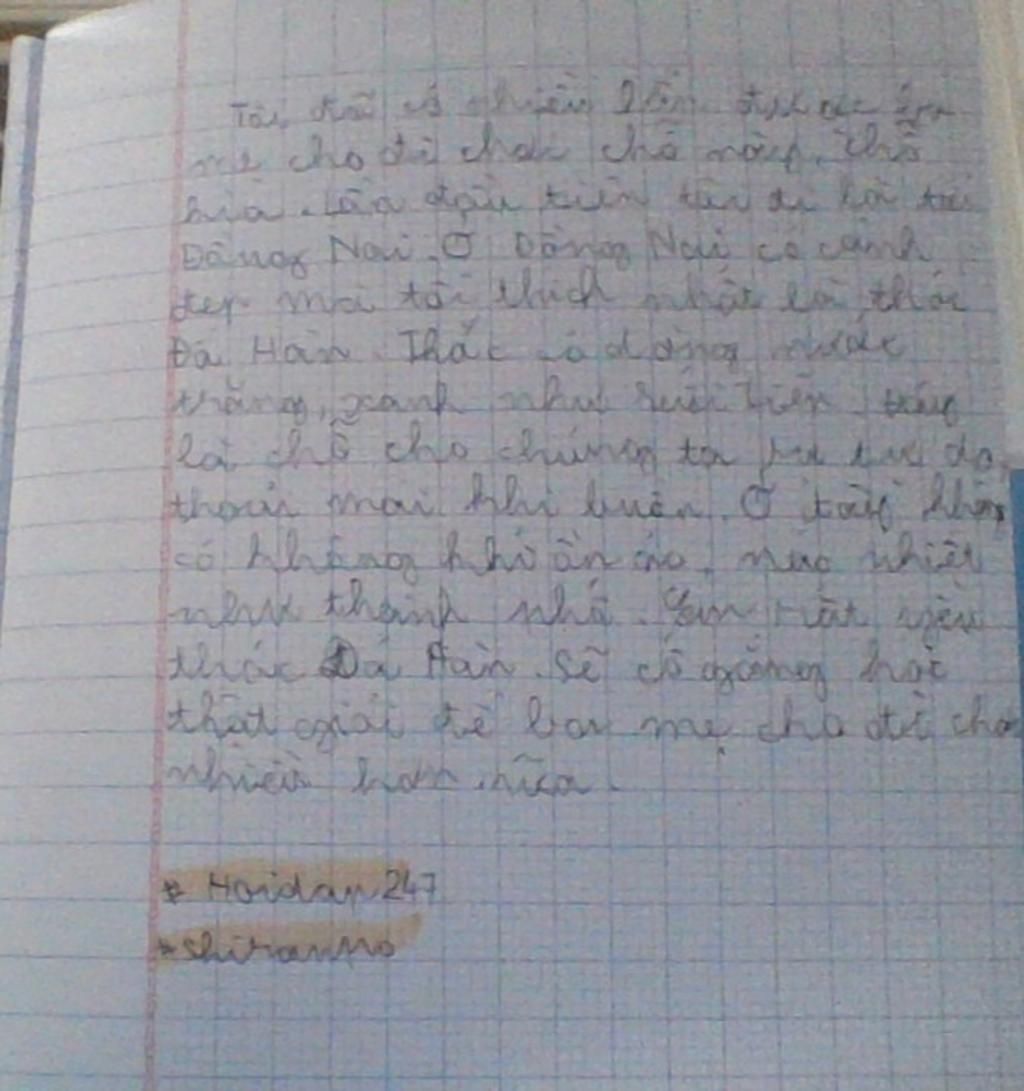 Tôi đã có nhiều lần được ba
mẹ cho đi chơi chỗ này, chỗ
kia. Lần đầu tiên tôi đi là tại
Đồng Nai. Ở Đồng Nai có cảnh
đẹp mà tôi thích nhất là thác
Đá Hàn. Thắc có dòng nước
trắng, xanh như suối tiên
là chỗ cho chúng ta
thoải mái khi buồn. Ở đây không
có không khí ồn ào, nhiệt
như thành phố. Em rất yêu
thác Đá Hàn. Sẽ cố gắng học
thật giỏi để ba mẹ cho đi chơi
nhiều hơn nữa.
# Hoidap247
#shiranno